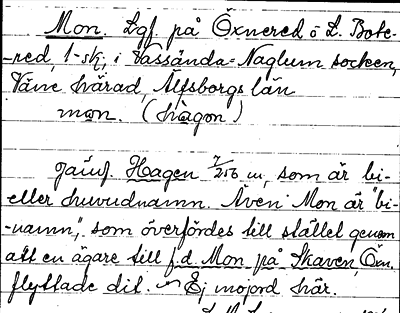 Mon. Lgf. på Öxnered o L. Bote-
-red, 1-sk, i Vassända-Naglum socken,
Väne härad, Älfsborgs län
mon. (hagon)
jämf. Hagen 7/256 m, som är bi-
eller huvudnamn. Även Mon är "bi-
-namn", som överfördes till stället genom
att en ägare till f.d. Mon på Skaven, Öxn.
flyttade dit. Ej mojord här.